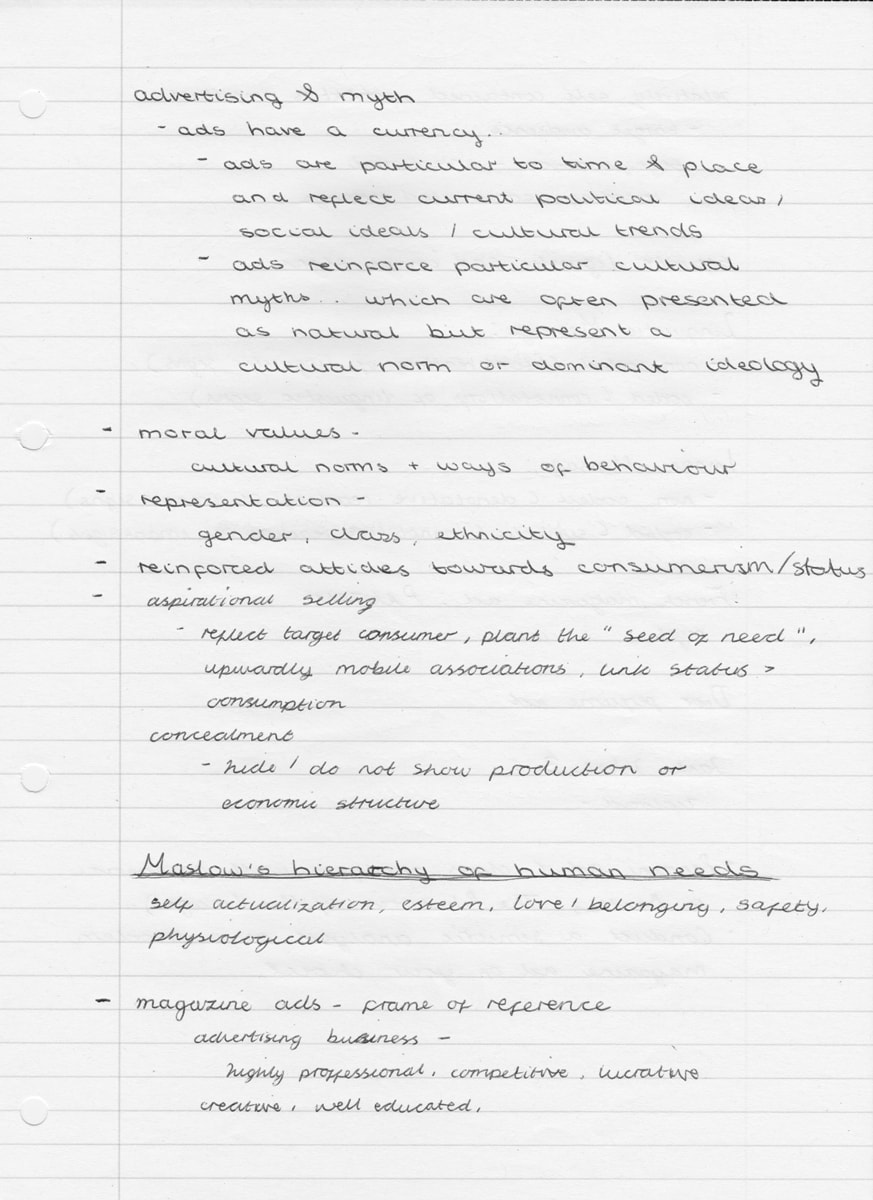 advertising & myth
- ads have a currency..
- ads are particular to time & place
and reflect current political ideas /
social ideals / cultural trends
- ads reinforce particular cultural
myths.. which are often presented
as natural but represent a
cultural norm or dominant ideology
- moral values -
cultural norms + ways of behaviour
- representation -
gender, class, ethnicity
- reinforced attides towards consumerism/status
- aspirational selling
- reflect target consumer, plant the "seed of need",
upwardly mobile associations, link status >
consumption
concealment
- hide / do not show production or
economic structure
Maslow's hierarchy of human needs
self actualization, esteem, love / belonging, safety,
physiological
- magazine ads - frame of reference
advertising business -
highly proffessional, competitive, lucrative
creative, well educated,